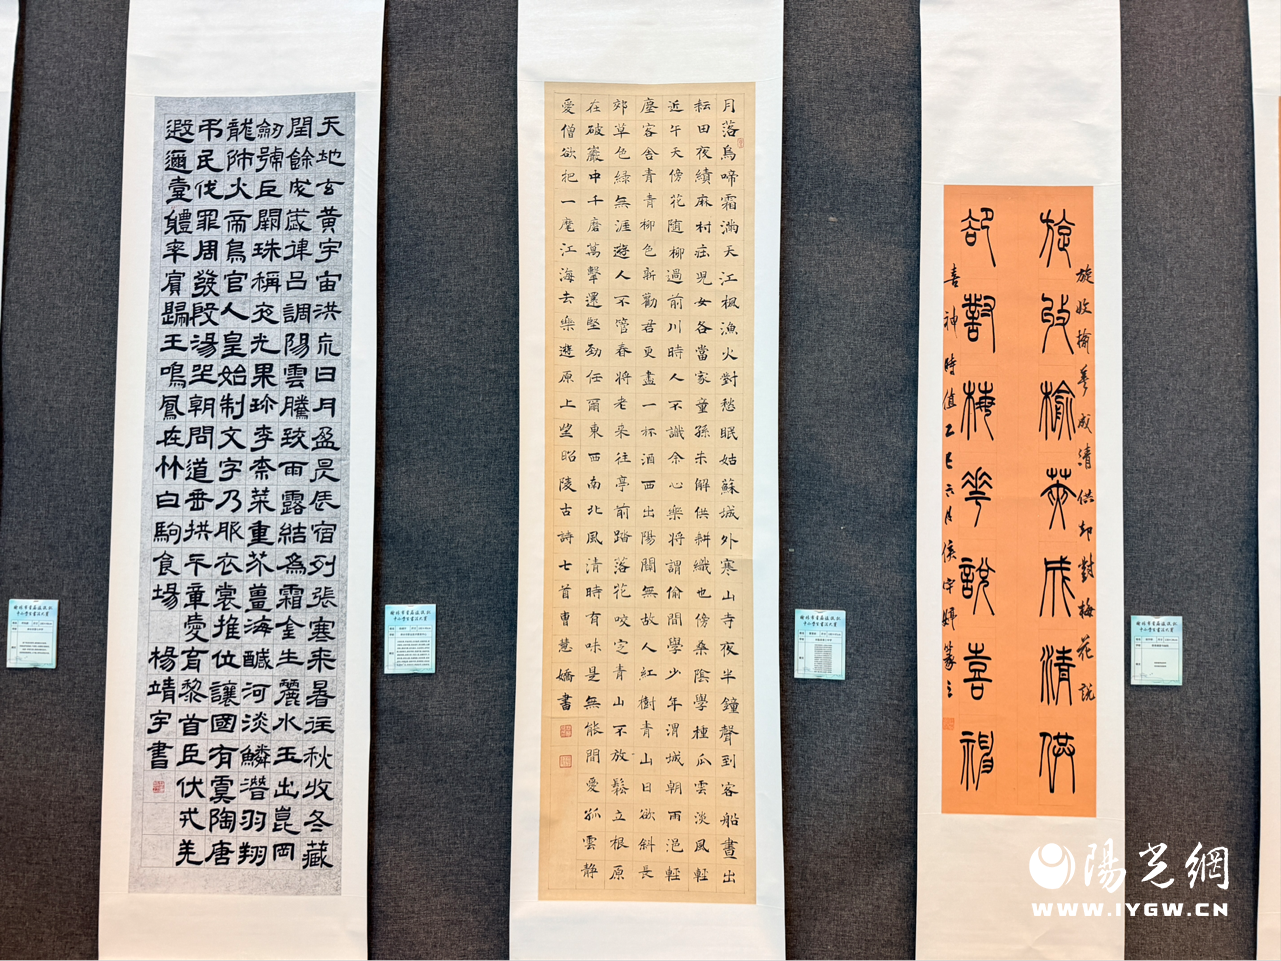 天地玄黃宇宙洪荒日月盈昃辰宿列張寒來暑往秋收冬藏
閏餘成歲律呂調陽雲騰致雨露結為霜金生麗水玉出崑岡
劍號巨闕珠稱夜光果珍李柰菜重芥薑海鹹河淡鱗潛羽翔
龍師火帝鳥官人皇始制文字乃服衣裳推位讓國有虞陶唐
弔民伐罪周發殷湯坐朝問道垂拱平章愛育黎首臣伏戎羌
遐邇壹體率賓歸王鳴鳳在竹白駒食場 楊靖宇書
月落烏啼霜滿天江楓漁火對愁眠姑蘇城外寒山寺夜半鐘聲到客船晝出
耘田夜績麻村莊兒女各當家童孫未解供耕織也傍桑陰學種瓜雲淡風輕
近午天傍花隨柳過前川時人不識余心樂將謂偷閒學少年渭城朝雨浥輕
塵客舍青青柳色新勸君更盡一杯酒西出陽關無故人紅樹青山日欲斜長
郊草色綠無涯遊人不管春將老來往亭前踏落花咬定青山不放鬆立根原
在破巖中千磨萬擊還堅勁任爾東西南北風清時有味是無能閒愛孤雲靜
愛僧欲把一麾江海去樂遊原上望昭陵古詩七首曹慧嬌書
旋收榆莢成清供却對梅花說
旋收榆莢成清供
却對梅花說喜神
喜神時值乙巳六月侯宇婷篆之
陽光網
WWW.IYGW.CN